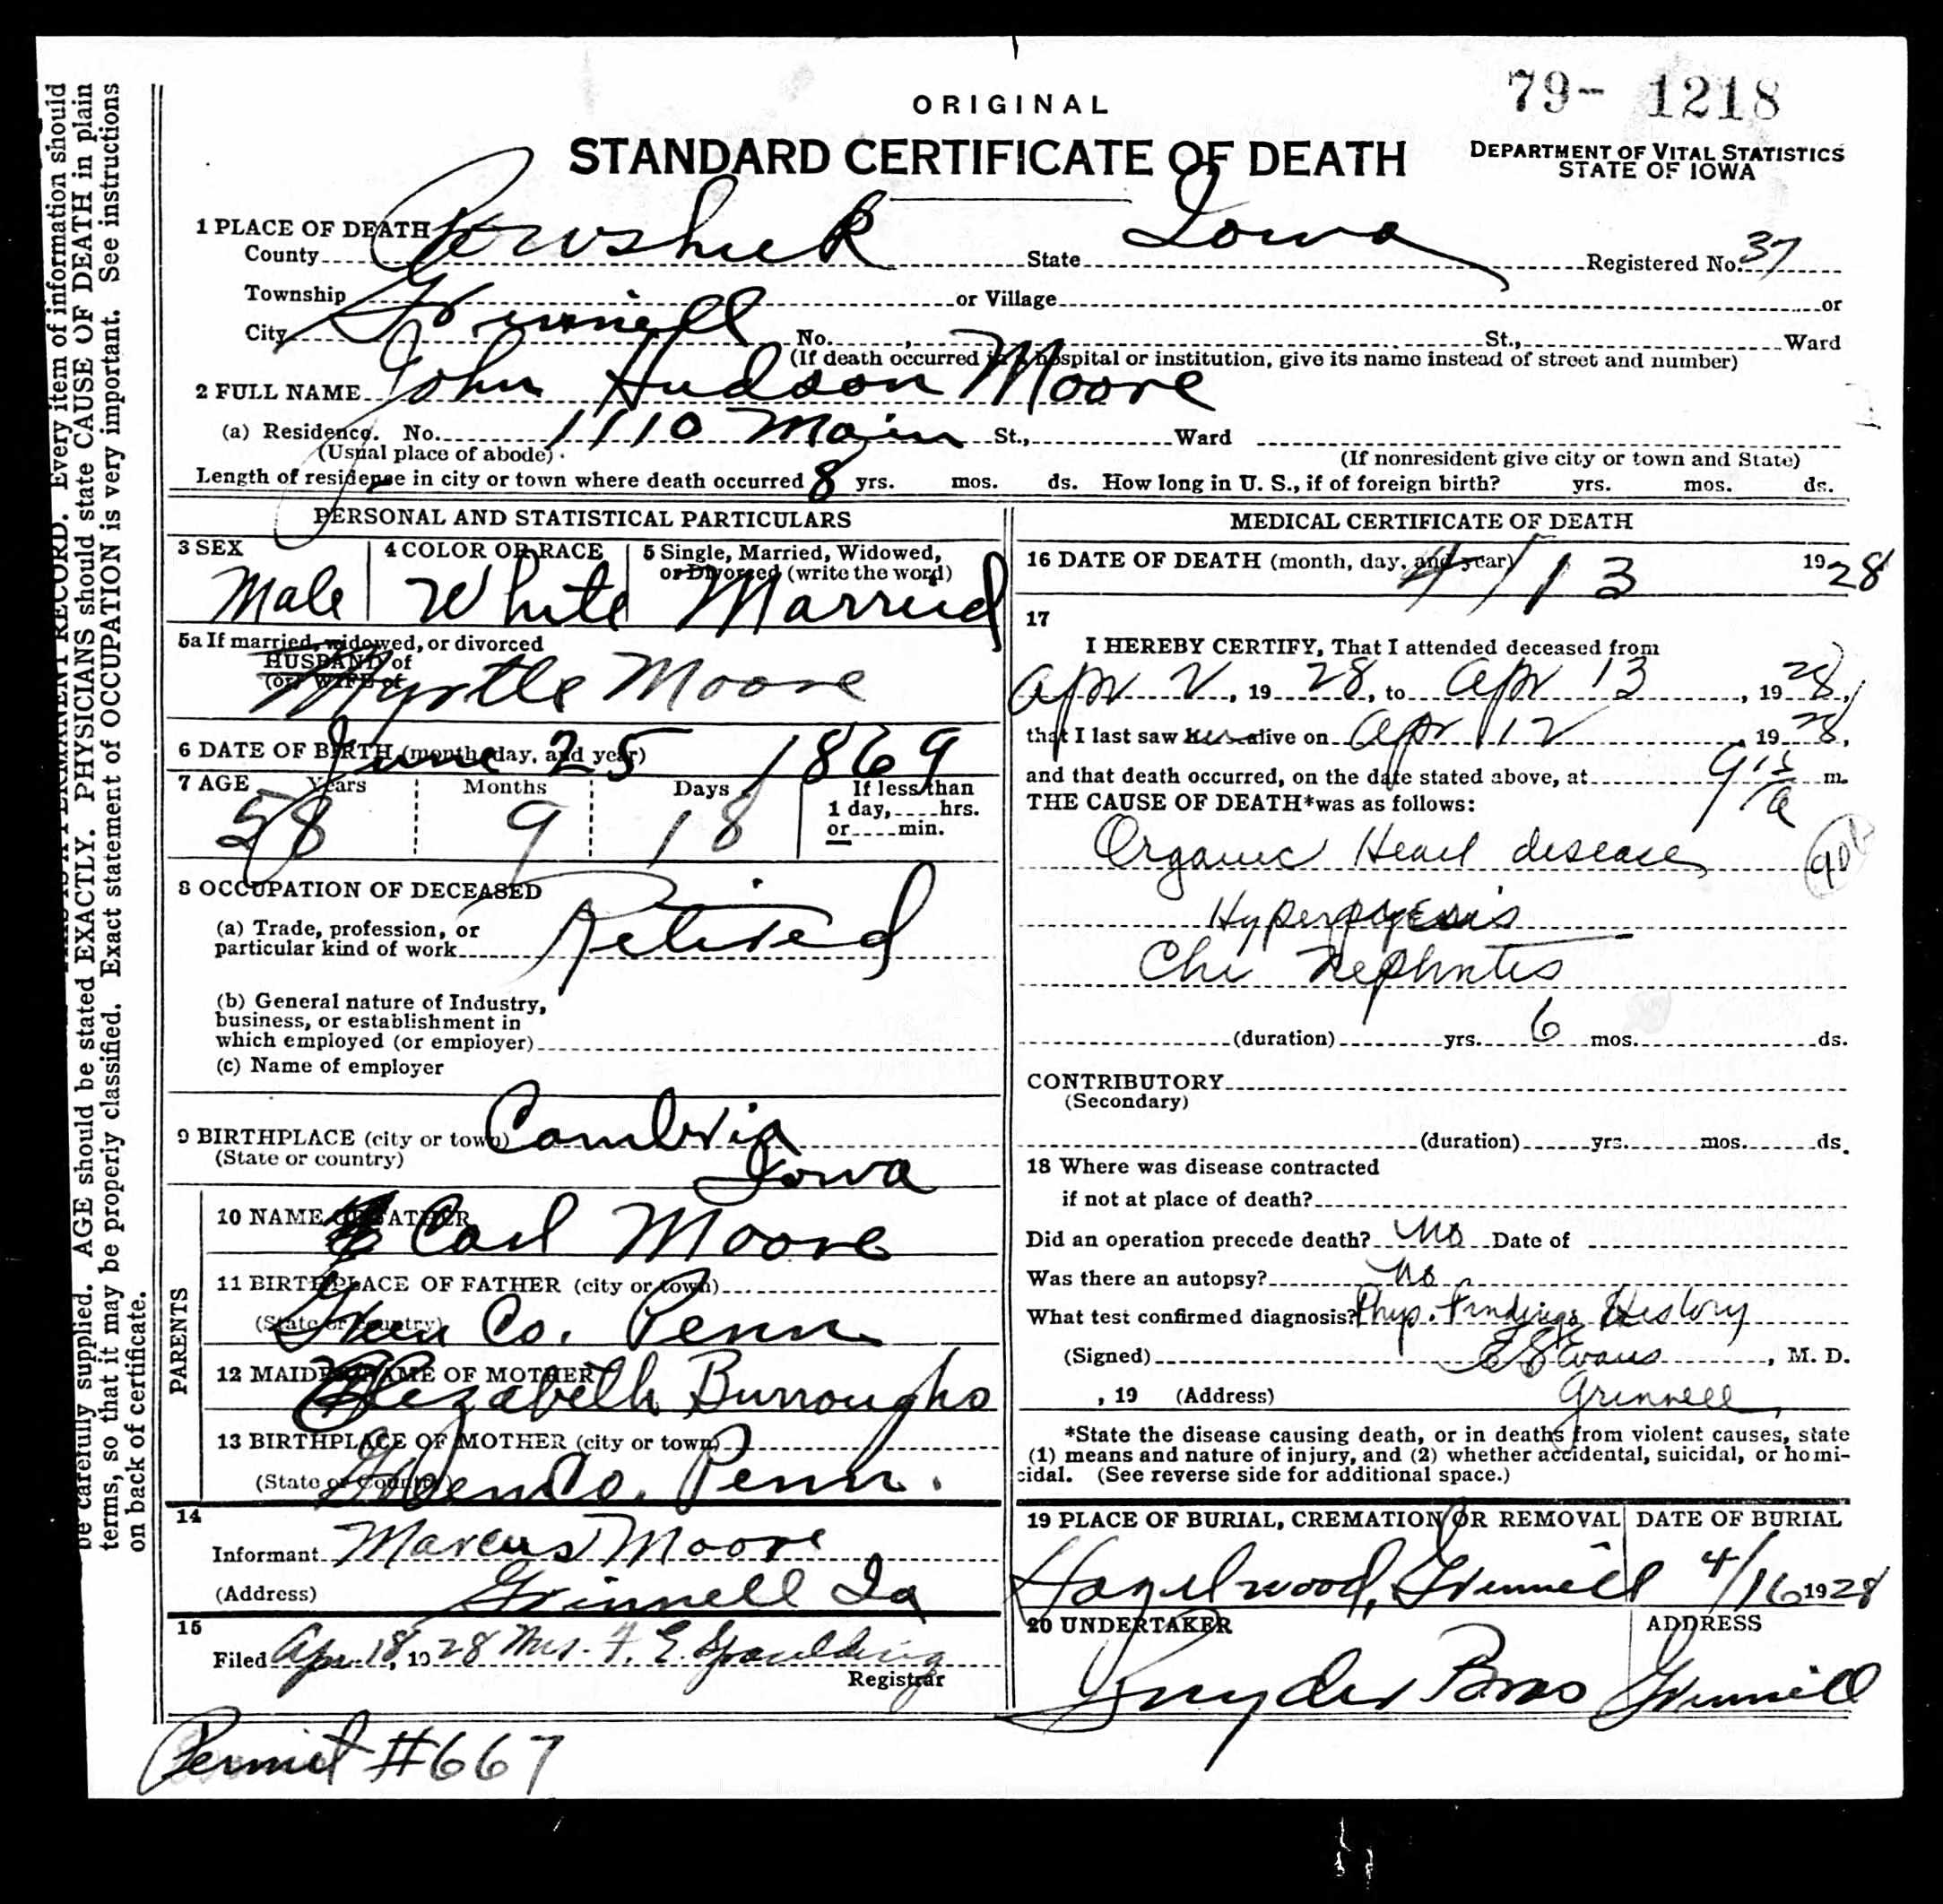 79- 1218
ORIGINAL
STANDARD CERTIFICATE OF DEATH
DEPARTMENT OF VITAL STATISTICS
STATE OF IOWA
1 PLACE OF DEATH
County Poweshiek State Iowa Registered No. 37
Township or Village or
City Grinnell No. St., Ward
(If death occurred in a hospital or institution, give its name instead of street and number)
2 FULL NAME John Hudson Moore
(a) Residence. No. 1110 Main St., Ward
(Usual place of abode) (If nonresident give city or town and State)
Length of residence in city or town where death occurred 8 yrs. mos. ds. How long in U. S., if of foreign birth? yrs. mos. ds.
PERSONAL AND STATISTICAL PARTICULARS
3 SEX 4 COLOR OR RACE 5 Single, Married, Widowed,
or Divorced (write the word)
Male White Married
5a If married, widowed, or divorced
HUSBAND of
(or) WIFE of
Myrtle Moore
6 DATE OF BIRTH (month, day, and year) June 25 1869
7 AGE Years Months Days If less than
1 day, hrs.
or min.
58 9 18
8 OCCUPATION OF DECEASED
(a) Trade, profession, or
particular kind of work Retired
(b) General nature of Industry,
business, or establishment in
which employed (or employer)
(c) Name of employer
9 BIRTHPLACE (city or town) Cambria
(State or country) Iowa
PARENTS
10 NAME OF FATHER Carl Moore
11 BIRTHPLACE OF FATHER (city or town)
(State or country) Green Co. Penn
12 MAIDEN NAME OF MOTHER
Elizabeth Burroughs
13 BIRTHPLACE OF MOTHER (city or town)
(State or Country) Co. Penn.
14
Informant Marcus Moore
(Address) Grinnell Ia
15
Filed Apr 18, 1928 Mrs. F. E. Spaulding
Registrar
MEDICAL CERTIFICATE OF DEATH
16 DATE OF DEATH (month, day, and year) 4/13 1928
17
I HEREBY CERTIFY, That I attended deceased from
Apr 2, 1928, to Apr 13, 1928,
that I last saw alive on Apr 12, 1928,
and that death occurred, on the date stated above, at 9 15 a m.
THE CAUSE OF DEATH* was as follows:
Organic Heart disease
90
Chr Nephritis
(duration) yrs. 6 mos. ds.
CONTRIBUTORY
(Secondary)
(duration) yrs. mos. ds.
18 Where was disease contracted
if not at place of death?
Did an operation precede death? No Date of
Was there an autopsy? No
What test confirmed diagnosis? Phys. Findings & History
(Signed) E S Evans, M. D.
, 19 (Address) Grinnell
*State the disease causing death, or in deaths from violent causes, state
(1) means and nature of injury, and (2) whether accidental, suicidal, or homi-
cidal. (See reverse side for additional space.)
19 PLACE OF BURIAL, CREMATION OR REMOVAL DATE OF BURIAL
Hazelwood, Grinnell 4/16 1928
20 UNDERTAKER ADDRESS
Snyder Bros Grinnell
Permit #667
RECORD. Every item of information should
be carefully supplied. AGE should be stated EXACTLY. PHYSICIANS should state CAUSE OF DEATH in plain
terms, so that it may be properly classified. Exact statement of OCCUPATION is very important. See instructions
on back of certificate.